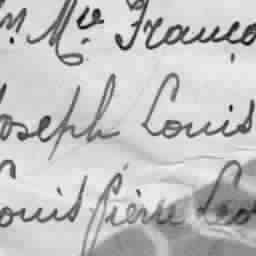 Me Franço
Joseph Louis
Louis Pierre Leo